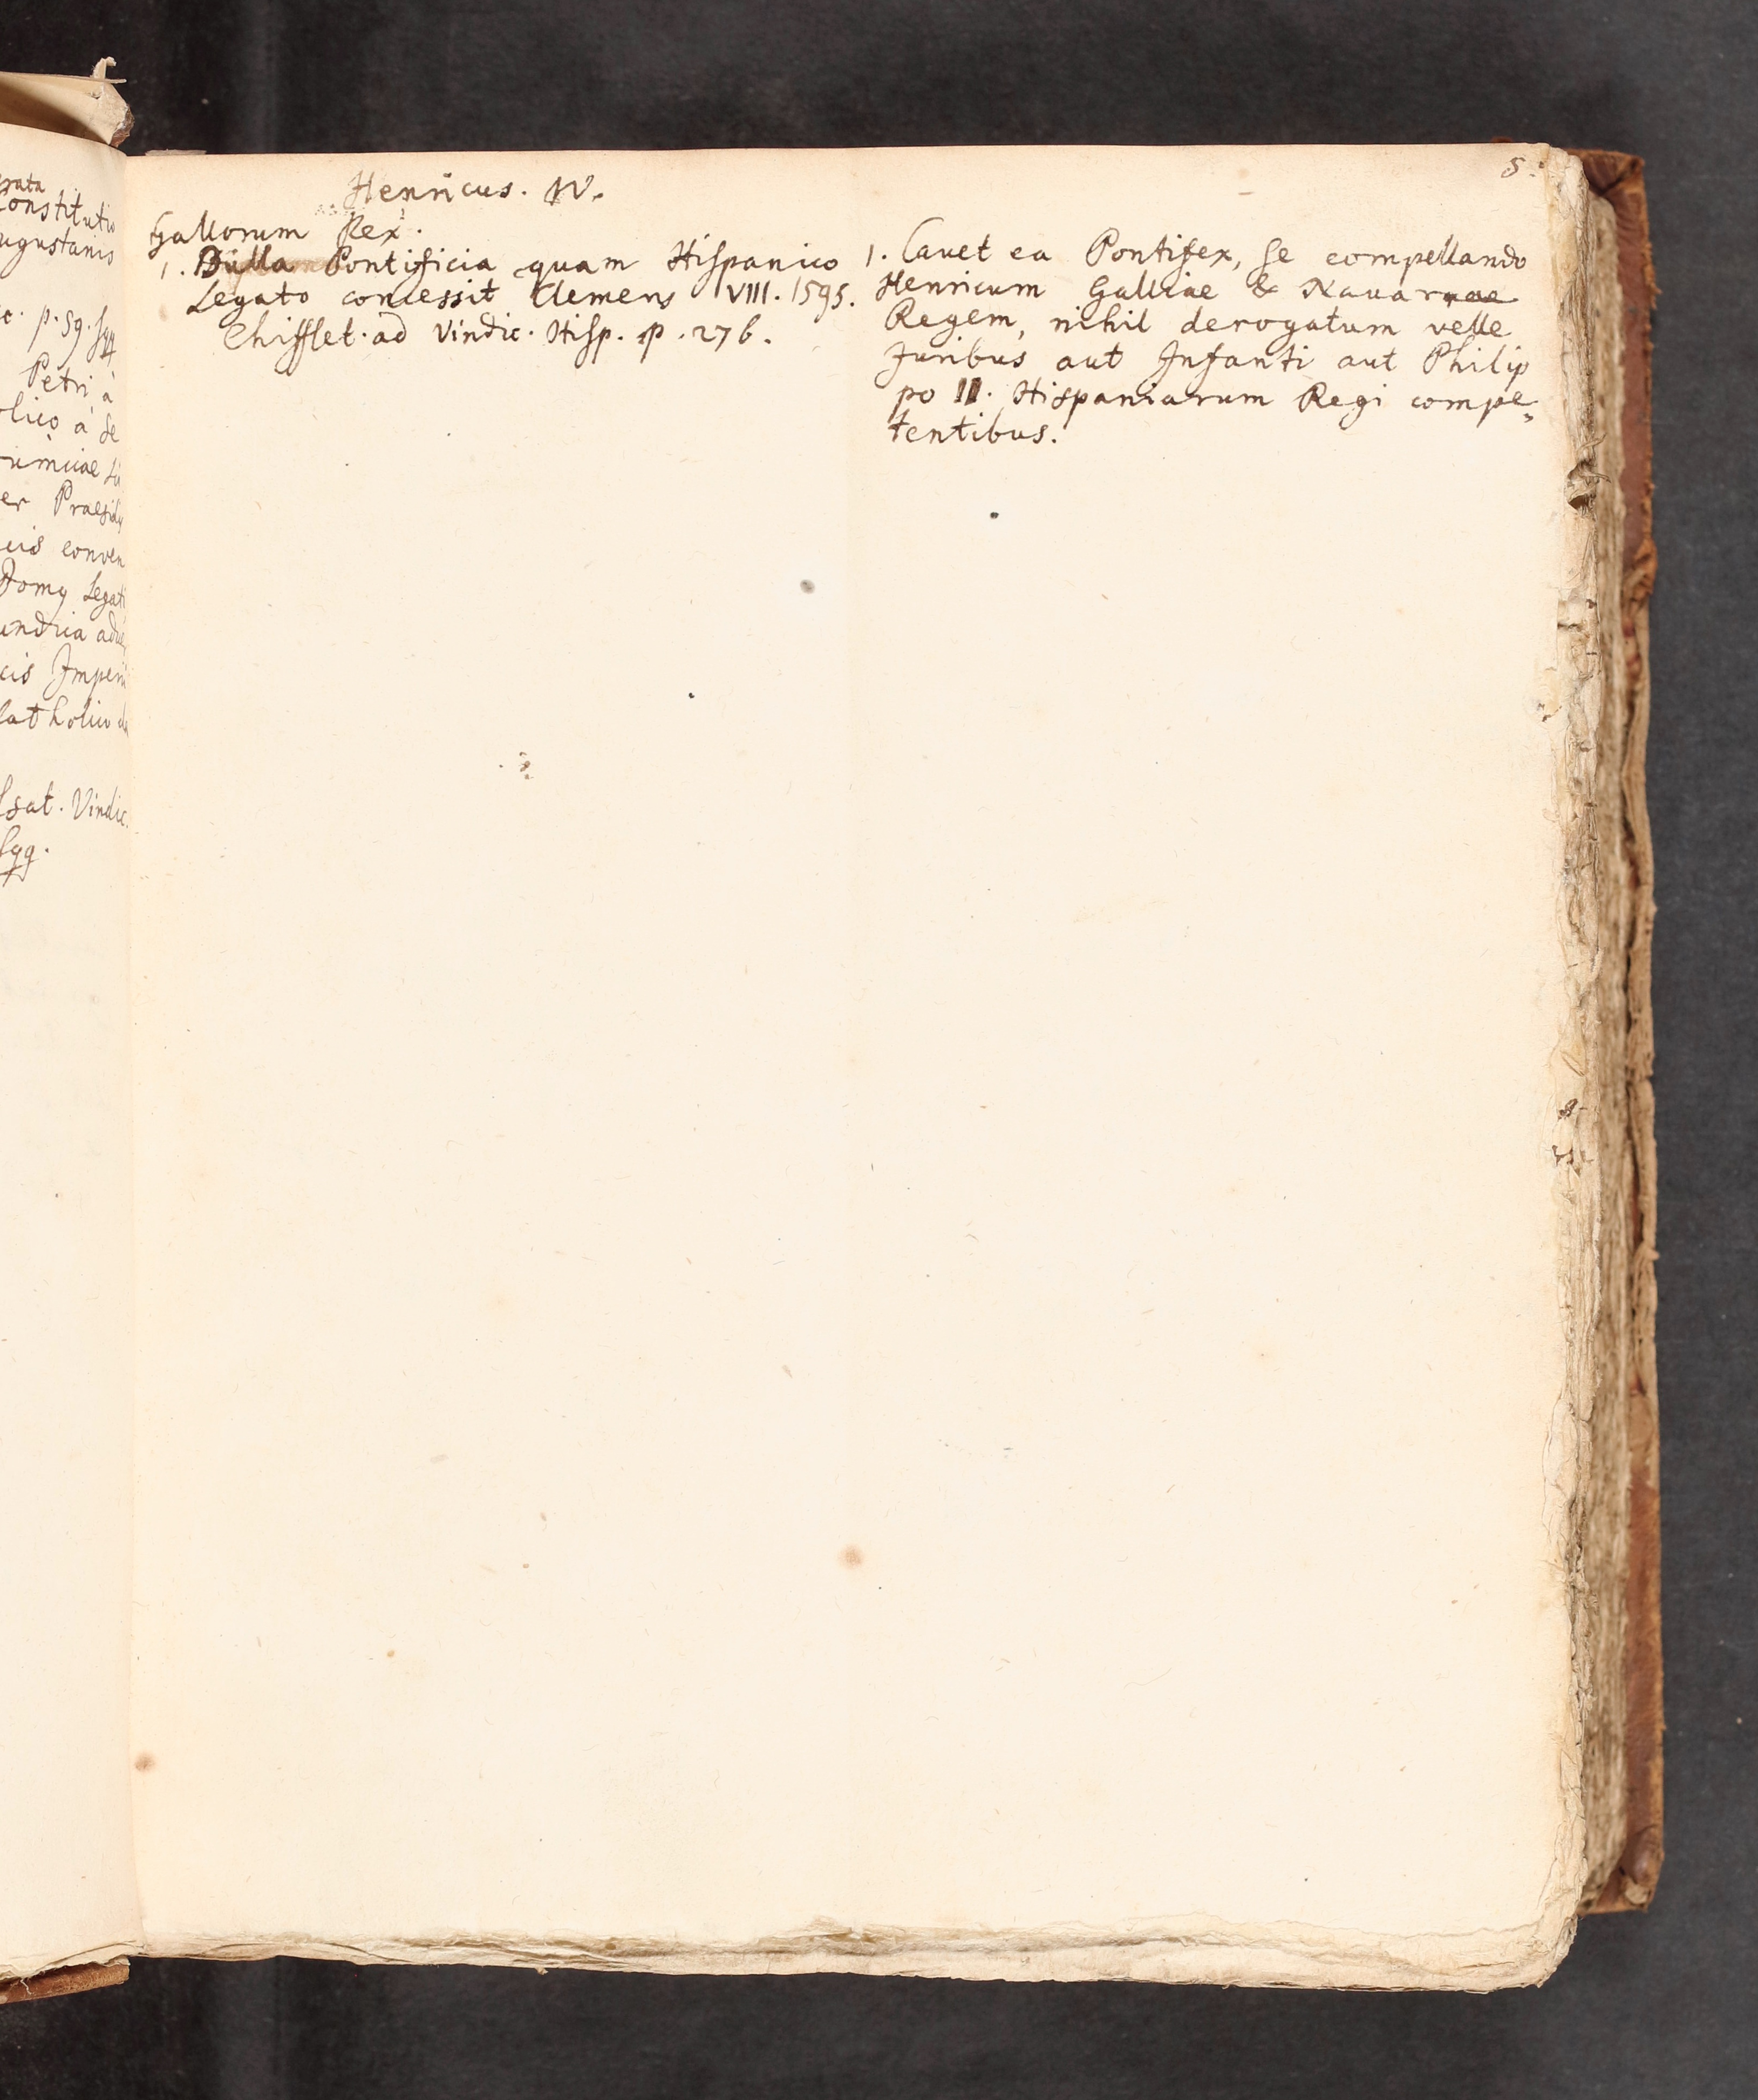 rata
Constitutio
ugustanis
p. 59. sqq
Petri à
lico à Se
er Praesidÿ
cis conven
Domq Legati
cis Imperii
Catholico
lsat. Vindic.
sqq.
8.
Henricus. IV.
Gallorum Rex.
1. Bulla Pontificia quam Hispanico
Legato concessit Clemens VIII. 1595.
Chifflet. ad Vindic. Hisp. p. 276.
1. Cauet ea Pontifex, se compellando
Henricum Galliae & Nauarrae
Regem, nihil derogatum velle
Juribus aut Infanti aut Philip
po II. Hispaniarum Regi compe,,
tentibus.